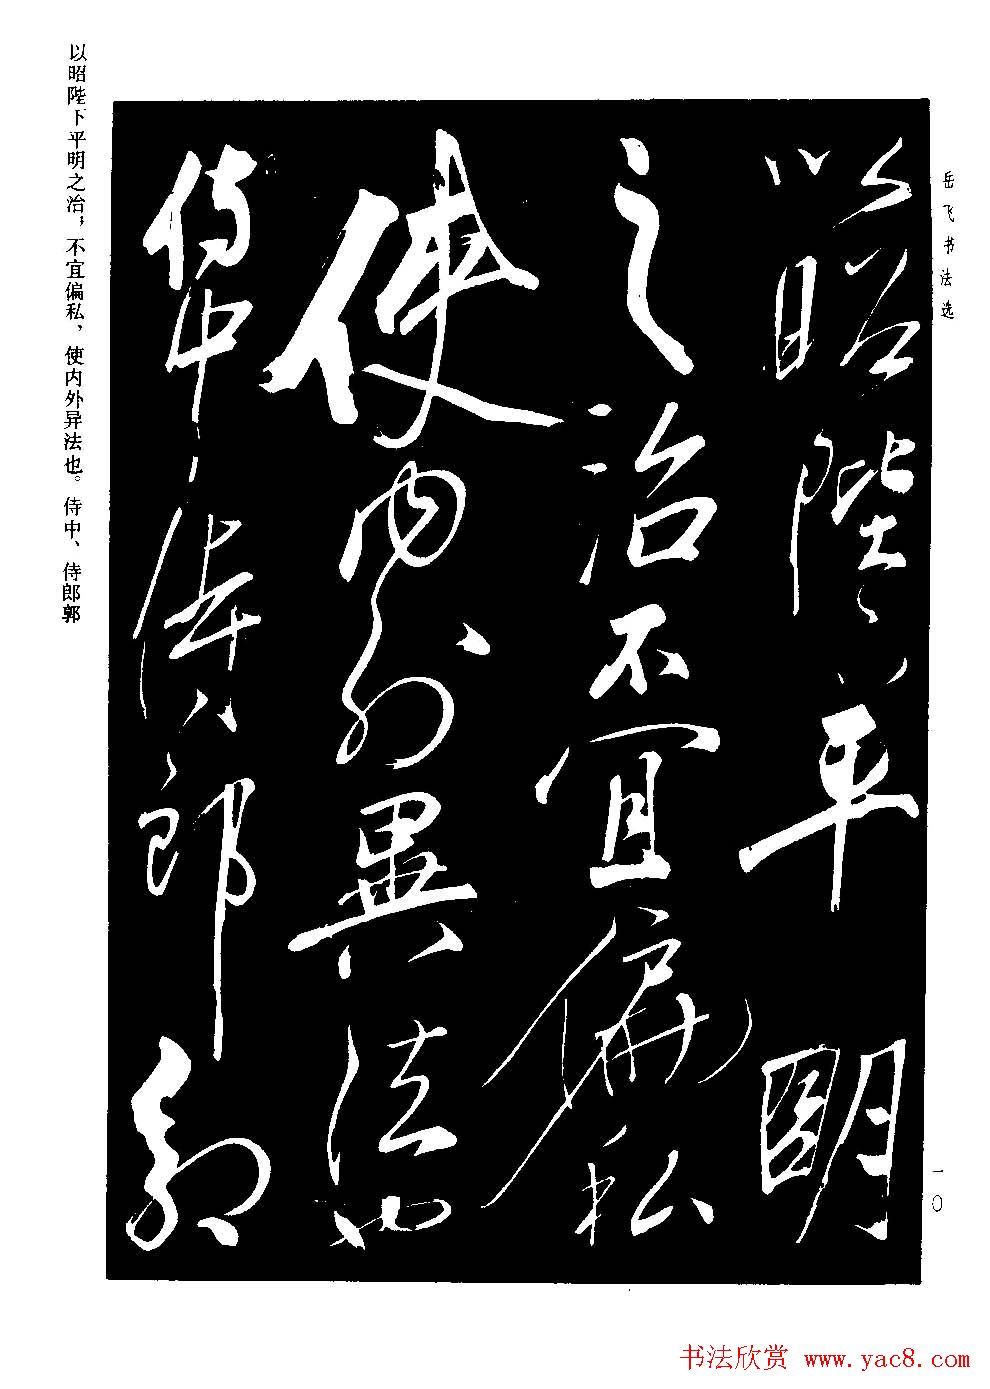 岳飞书法选
以昭陛下平明
之治不宜偏私
使内外異法也
侍中侍郎郭
以昭陛下平明之治，不宜偏私，使内外异法也。侍中、侍郎郭
一〇
书法欣赏 www.yac8.com